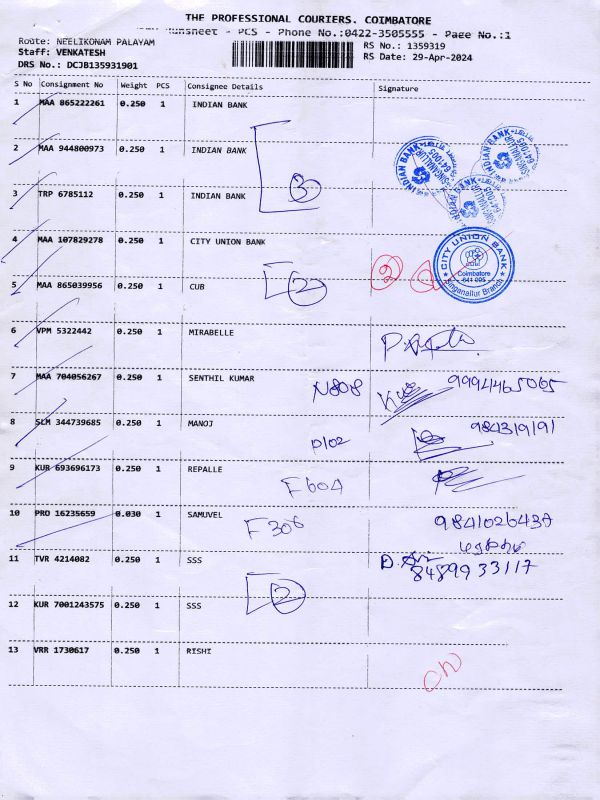 THE PROFESSIONAL COURIERS. COIMBATORE
Runsheet - PCS - Phone No.:0422-3505555 - Page No.:1
Route: NEELIKONAM PALAYAM
RS No.: 1359319
Staff: VENKATESH
RS Date: 29-Apr-2024
DRS No.: DCJB135931901
S No Consignment No Weight PCS Consignee Details Signature
1 MAA 865222261 0.250 1 INDIAN BANK
2 MAA 944800973 0.250 1 INDIAN BANK
3
INDIAN BANK
SINGANALLUR
641-005
3 TRP 6785112 0.250 1 INDIAN BANK
4 MAA 107829278 0.250 1 CITY UNION BANK
2
CITY UNION BANK
Coimbatore
641 005
Singanallur Branch
5 MAA 865039956 0.250 1 CUB 2
6 VPM 5322442 0.250 1 MIRABELLE
7 MAA 704056267 0.250 1 SENTHIL KUMAR N808 9994465065
8 SLM 344739685 0.250 1 MANOJ D102 984319191
9 KUR 693696173 0.250 1 REPALLE F604
10 PRO 16235659 0.030 1 SAMUVEL F306
11 TVR 4214082 0.250 1 SSS 8489933117
2
12 KUR 7001243575 0.250 1 SSS
13 VRR 1730617 0.250 1 RISHI